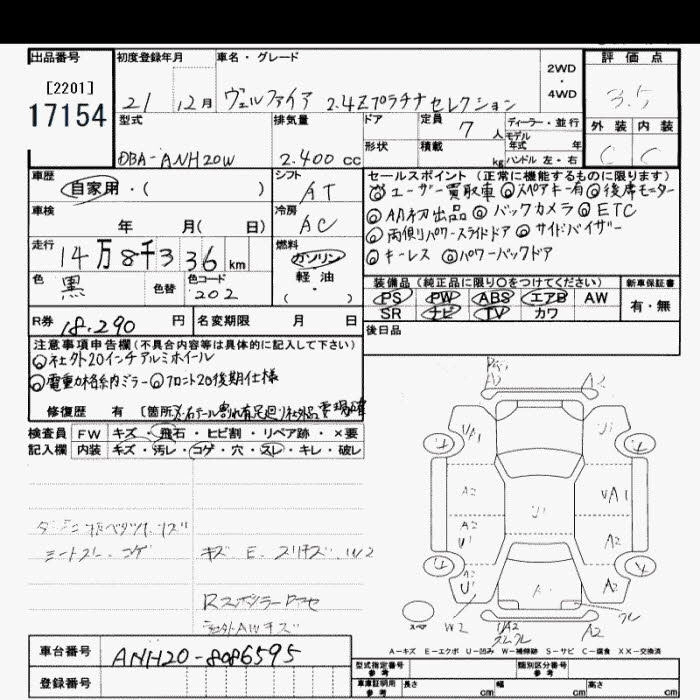 出品番号
[2201]
17154
初度登録年月
21 12月
車名・グレード
ヴェルファイア 2.4Zプラチナセレクション
2WD
・
4WD
評価点
3.5
外装 内装
C C
型式
DBA-ANH20W
排気量
2.400 cc
ドア
定員
7 人
ディーラー・並行
モデル
年式 年
形状
積載
kg
ハンドル 左・右
車歴
自家用・( )
シフト
AT
車検
年 月( 日)
冷房
AC
走行
14万8千336km
燃料
ガソリン
軽油
( ・ )
色
黒
色替
色コード
202
セールスポイント (正常に機能するものに限ります)
◎ユーザー買取車 ◎スペアキー有 ◎後席モニター
◎AA初出品 ◎バックカメラ ◎ETC
◎両側パワースライドドア ◎サイドバイザー
◎キーレス ◎パワーバックドア
装備品 (純正品に限り○をつけてください)
PS PW ABS エアB AW
SR ナビ TV カワ
新車保証書
有・無
R券 18.290 円
名変期限 月 日
後日品
注意事項申告欄(不具合内容等は具体的に記入して下さい)
◎社外20インチアルミホイール
◎電動格納ミラー ◎フロント20後期仕様
修復歴 有 [箇所
検査員
記入欄
FW キズ・飛石・ヒビ割・リペア跡・×要
内装 キズ・汚レ・コゲ・穴・スレ・キレ・破レ
シートスレ コゲ
キズ E.
W2
社外AWキズ
A2
A2
UA1
U1
A2
UA1
U1
A2
U1
A2
A2
U1
A2
スペア
W2
UA2
A2
A-キズ E-エクボ U-凹み W-補修跡 S-サビ C-腐食 XX-交換済
車台番号
ANH20-8086595
登録番号
型式指定番号
参考
類別区分番号
参考
車庫証明用
参考
長さ cm
幅 cm
高さ cm